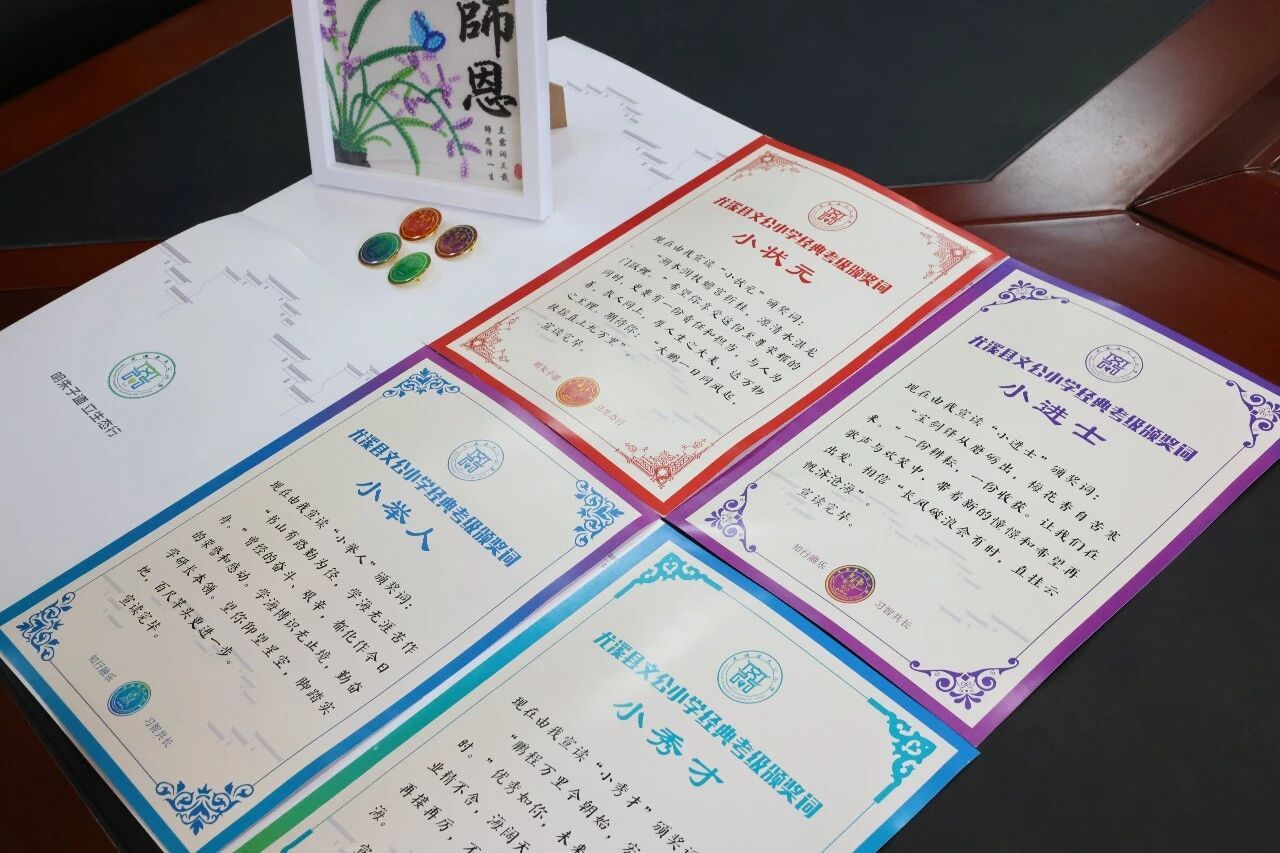 師恩
师恩泽一生
明朱子道 立生态行
尤溪县文公小学经典考级颁奖词
小状元
现在由我宣读“小状元”颁奖词：
“洞本润枝蟾宫折桂，源清水湛龙
门跃鲤。”希望你享受这份至尊荣耀的
同时，更要有一份责任和担当，与人为
善，我人同上，厚人生之大麦，达万物
之至理。期待你，“大鹏一日同风起，
扶摇直上九万里”。
宣读完毕。
明朱子道
立生态行
尤溪县文公小学经典考级颁奖词
小进士
现在由我宣读“小进士”颁奖词：
“宝剑锋从磨砺出，梅花香自苦寒
来。”一份耕耘，一份收获。让我们在
歌声与欢笑中，带着新的憧憬和希望再
出发。相信“长风破浪会有时，直挂云
帆济沧海”。
宣读完毕。
知行融乐
习智共长
尤溪县文公小学经典考级颁奖词
小举人
现在由我宣读“小举人”颁奖词：
“书山有路勤为径，学海无涯苦作
舟。”曾经的奋斗、艰辛，都化作今日
的荣誉和感动。学海博识无止境，勤奋
学研长本领。望你仰望星空，脚踏实
地，百尺竿头更进一步。
宣读完毕。
知行融乐
习智共长
尤溪县文公小学经典考级颁奖词
小秀才
现在由我宣读“小秀才”颁奖词
“鹏程万里今朝始，宏
时。”优秀如你，未来
业精不舍，海阔天
再接再厉，不
海。
宣